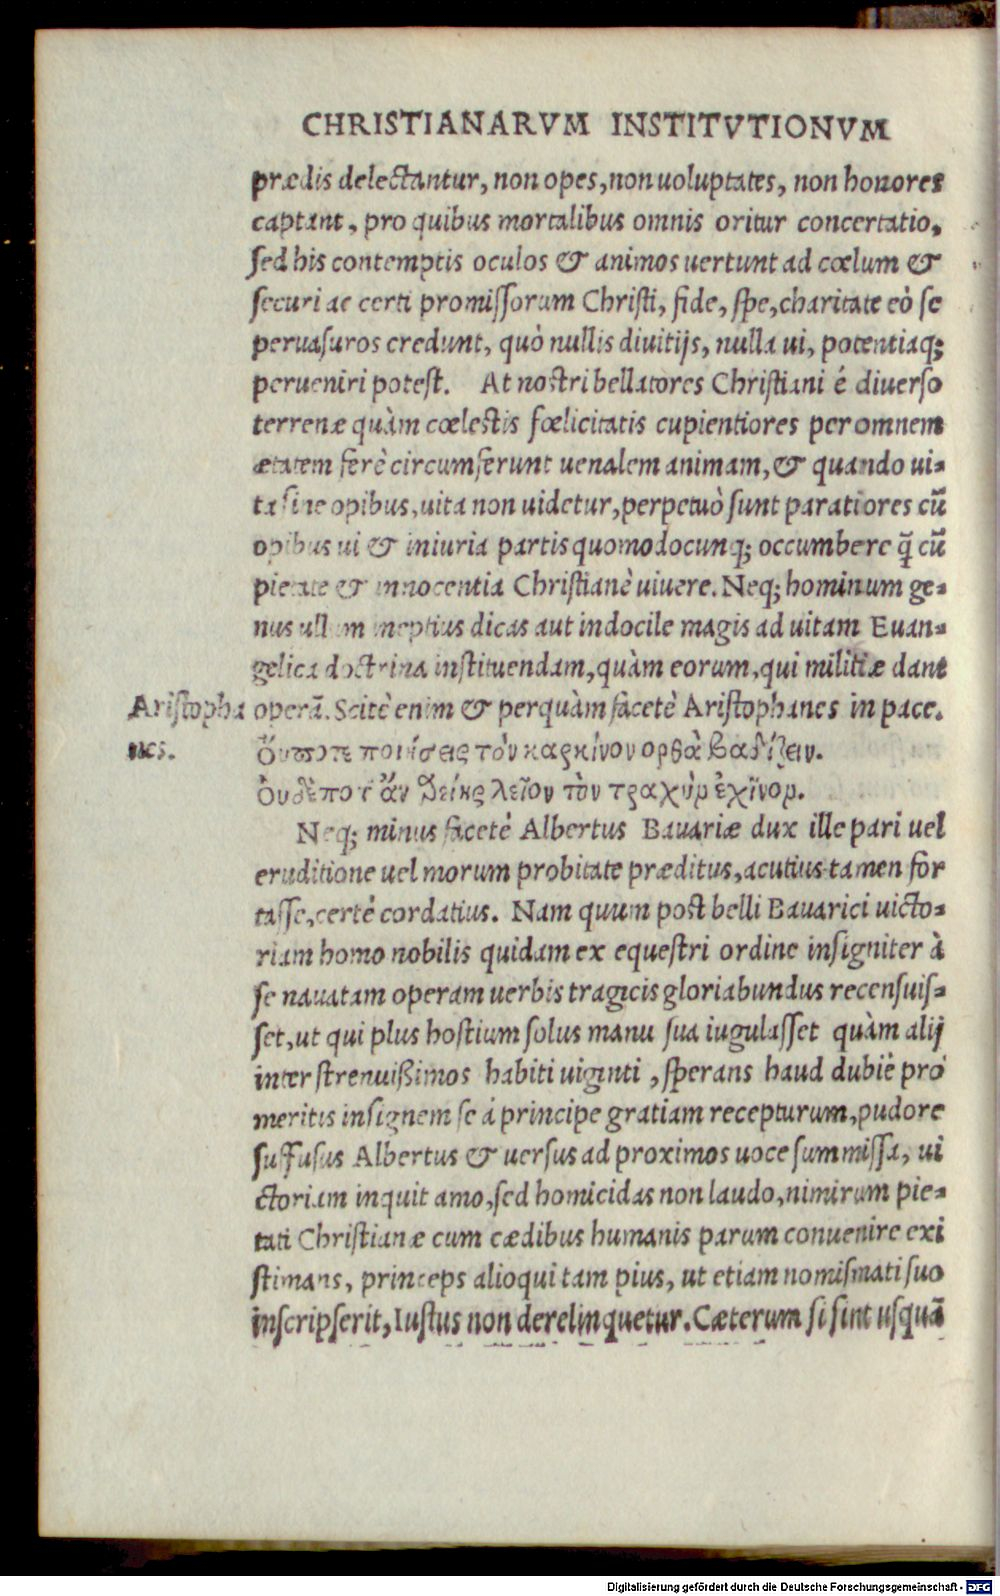 CHRISTIANARVM INSTITVTIONVM
prædis delectantur, non opes, non uoluptates, non honores
captant, pro quibus mortalibus omnis oritur concertatio,
sed his contemptis oculos & animos uertunt ad cœlum &
securi ac certi promissorum Christi, fide, spe, charitate eò se
peruasuros credunt, quò nullis diuitijs, nulla ui, potentiaq;
perueniri potest. At nostri bellatores Christiani é diuerso
terrenæ quàm cœlestis fœlicitatis cupientiores per omnem
ætatem ferè circumferunt uenalem animam, & quando ui-
ta sine opibus, uita non uidetur, perpetuò sunt paratiores cū
opibus ui & iniuria partis quomodocunq; occumbere q̄ cū
pietate & innocentia Christianè uiuere. Neq; hominum ge-
nus ullum ineptius dicas aut indocile magis ad uitam Euan-
gelica doctrina instituendam, quàm eorum, qui militiæ dant
Aristopha
nes.
operā. Scitè enim & perquàm facetè Aristophanes in pace.
Ὄυποτε ποιήσεις τὸν καρκίνον ορθὰ βαδίζειν.
Ὀυδέποτ' ἂν θείης λεῖον τὸν τραχὺν ἐχῖνον.
Neq; minus facetè Albertus Bauariæ dux ille pari uel
eruditione uel morum probitate præditus, acutius tamen for
tasse, certé cordatius. Nam quum post belli Bauarici uicto-
riam homo nobilis quidam ex equestri ordine insigniter à
se nauatam operam uerbis tragicis gloriabundus recensuis-
set, ut qui plus hostium solus manu sua iugulasset quàm alij
inter strenuißimos habiti uiginti, sperans haud dubiè pró
meritis insignem se á principe gratiam recepturum, pudore
suffusus Albertus & uersus ad proximos uoce summissa, ui
ctoriam inquit amo, sed homicidas non laudo, nimirum pie-
tati Christianæ cum cædibus humanis parum conuenire exi
stimans, princeps alioqui tam pius, ut etiam nomismati suo
inscripserit, Iustus non derelinquetur. Cæterum si sint usquā
Digitalisierung gefördert durch die Deutsche Forschungsgemeinschaft - DFG